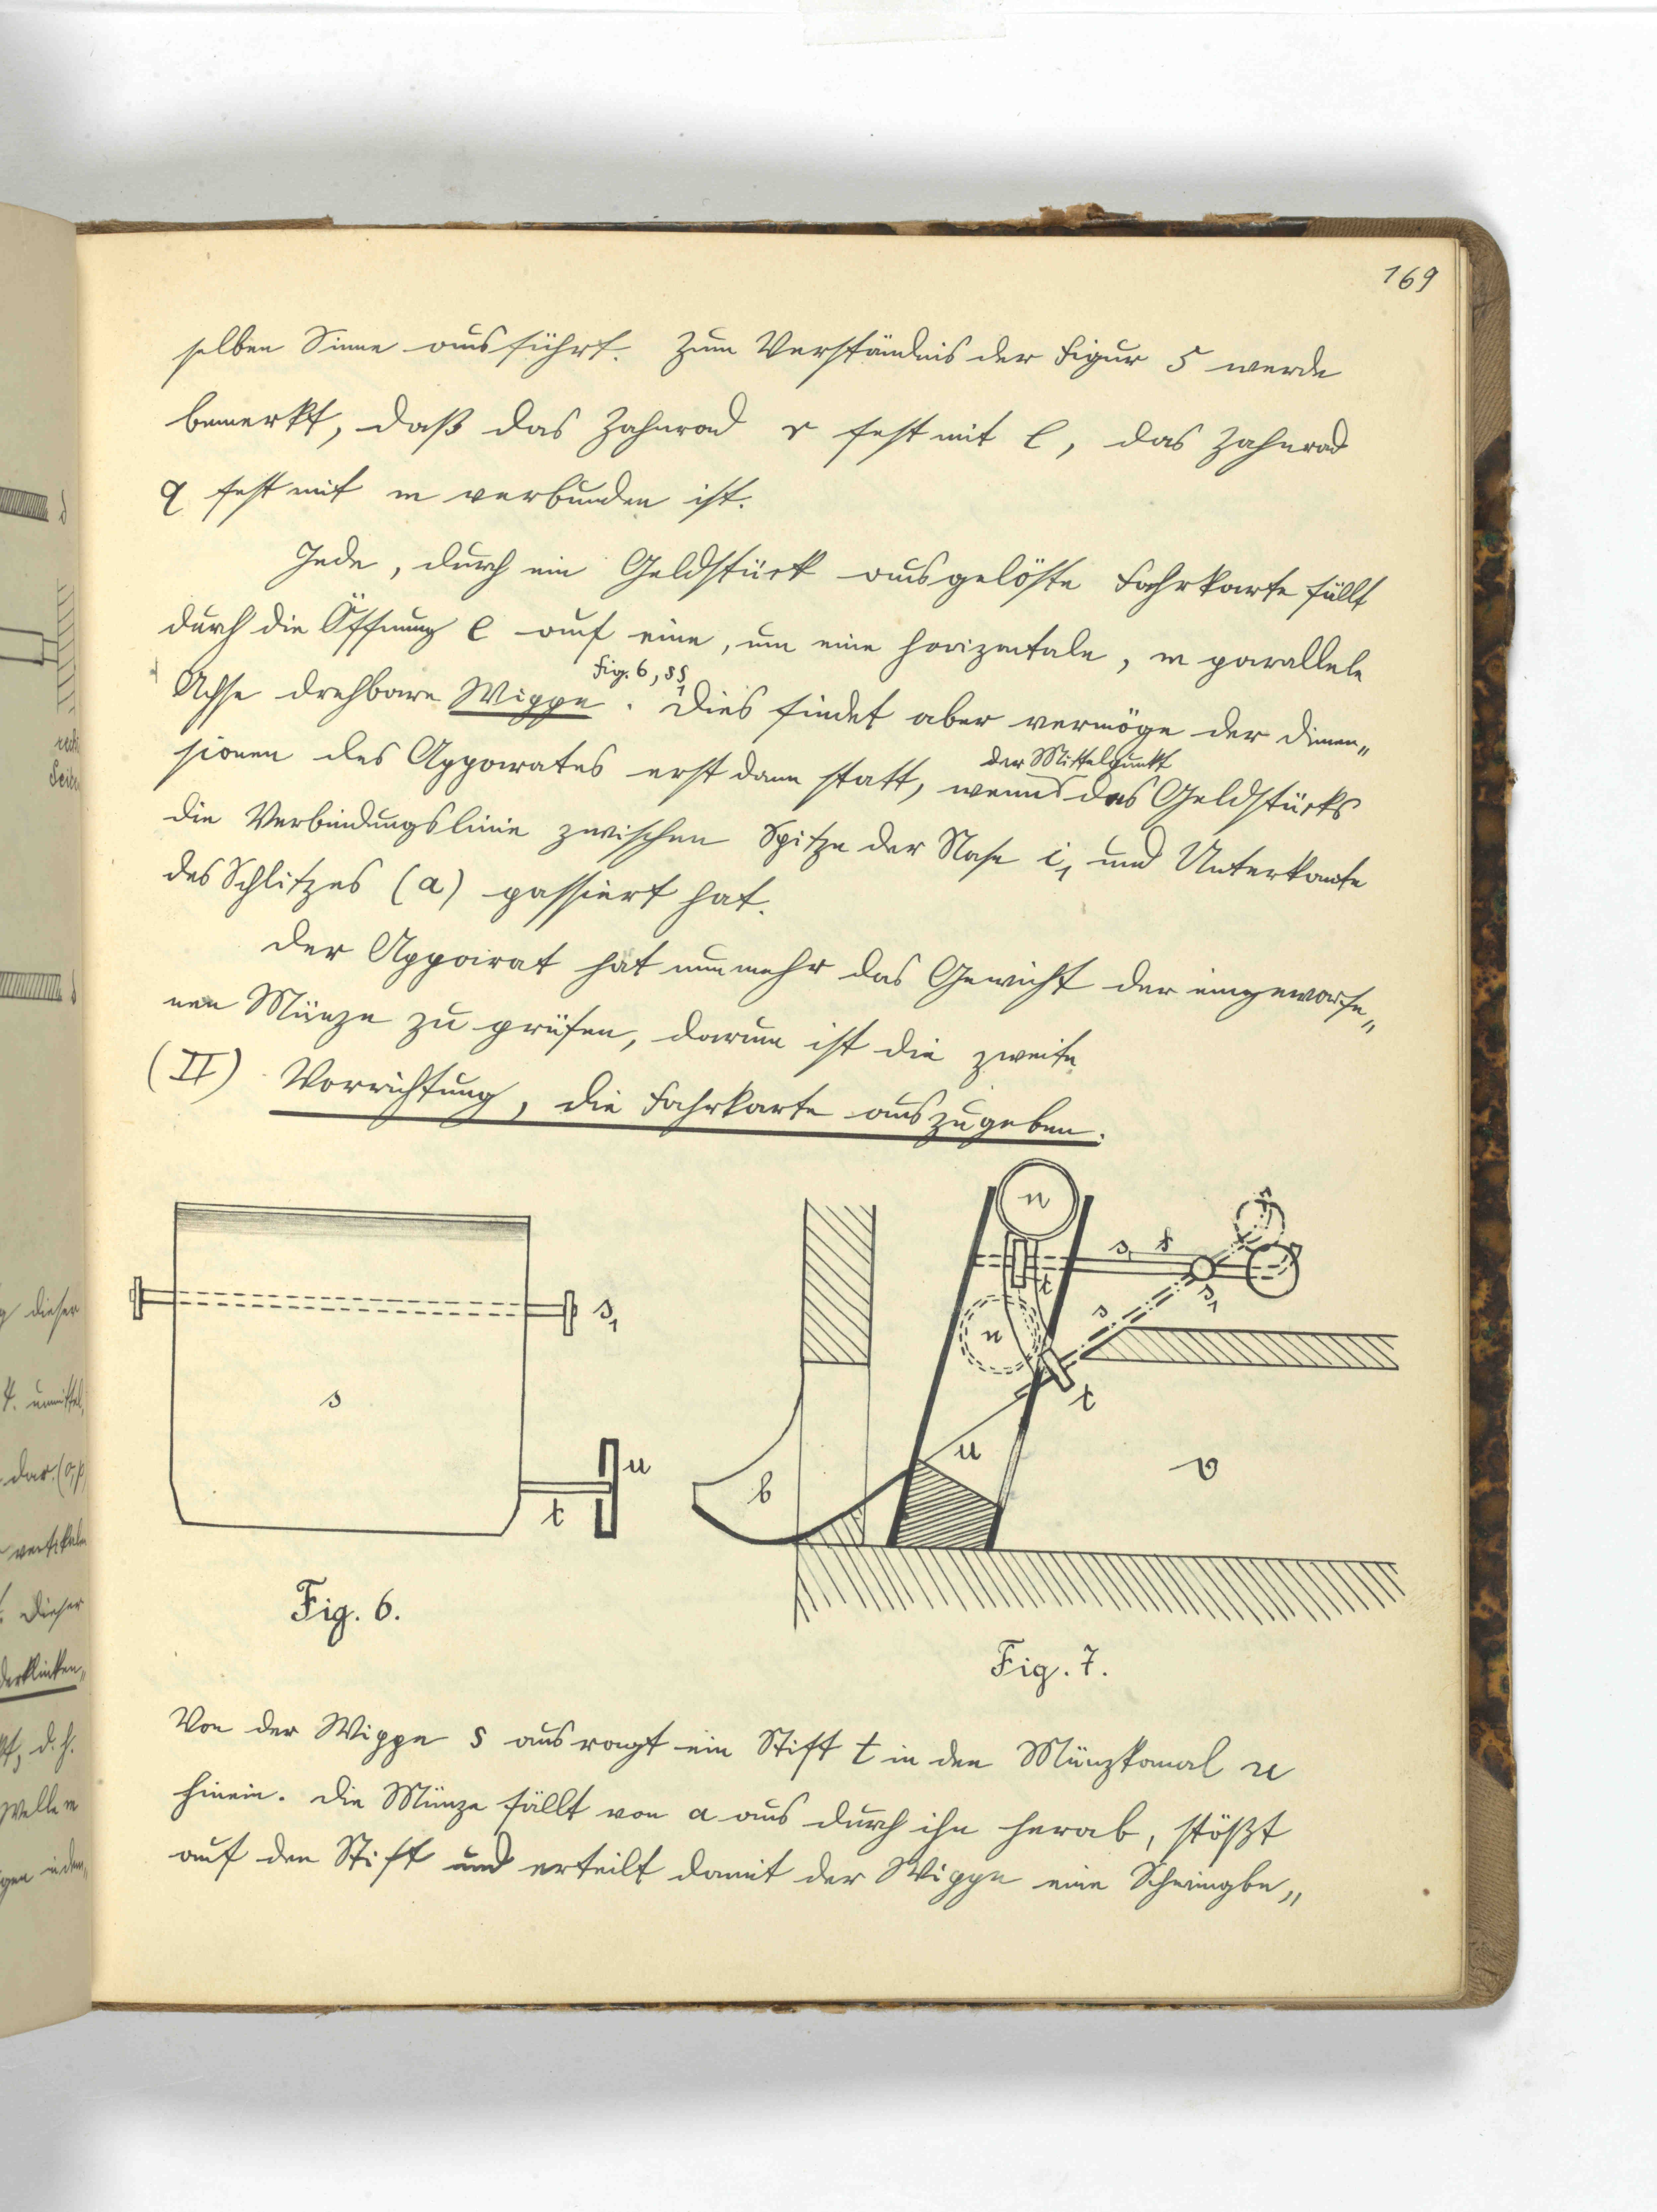 169
selben Sinne ausführt. Zum Verständnis der Figur 5 werde
bemerkt, daß das Zahnrad r fest mit l, das Zahnrad
q fest mit m verbunden ist.
Jede, durch ein Geldstück ausgelöste Fahrkarte fällt
durch die Öffnung e auf eine, um eine horizontale, m parallele
Fig. 6, ss1
Achse drehbare Wippe. Dies findet aber vermöge der Dimen„
der Mittelpunkt
sionen des Apparates erst dann statt, wenn des Geldstücks
die Verbindungslinie zwischen Spitze der Nase i1 und Unterkante
des Schlitzes (a) passiert hat.
Der Apparat hat nunmehr das Gewicht der eingeworfe„
nen Münze zu prüfen, darum ist die zweite
(II) Vorrichtung, die Fahrkarte auszugeben.
s1
s
u
t
Fig. 6.
n
s
t
s1
n
s
t
t
u
b
v
Fig. 7.
Von der Wippe s aus ragt ein Stift t in den Münzkanal u
hinein. Die Münze fällt von a aus durch ihn herab, stößt
auf den Stift und erteilt damit der Wippe eine Schwingbe„
d
rechte
Seite
d
dieser
4. unmittel„
dar. (o,p)
vertikalen
Dieser
d. h.
Welle m